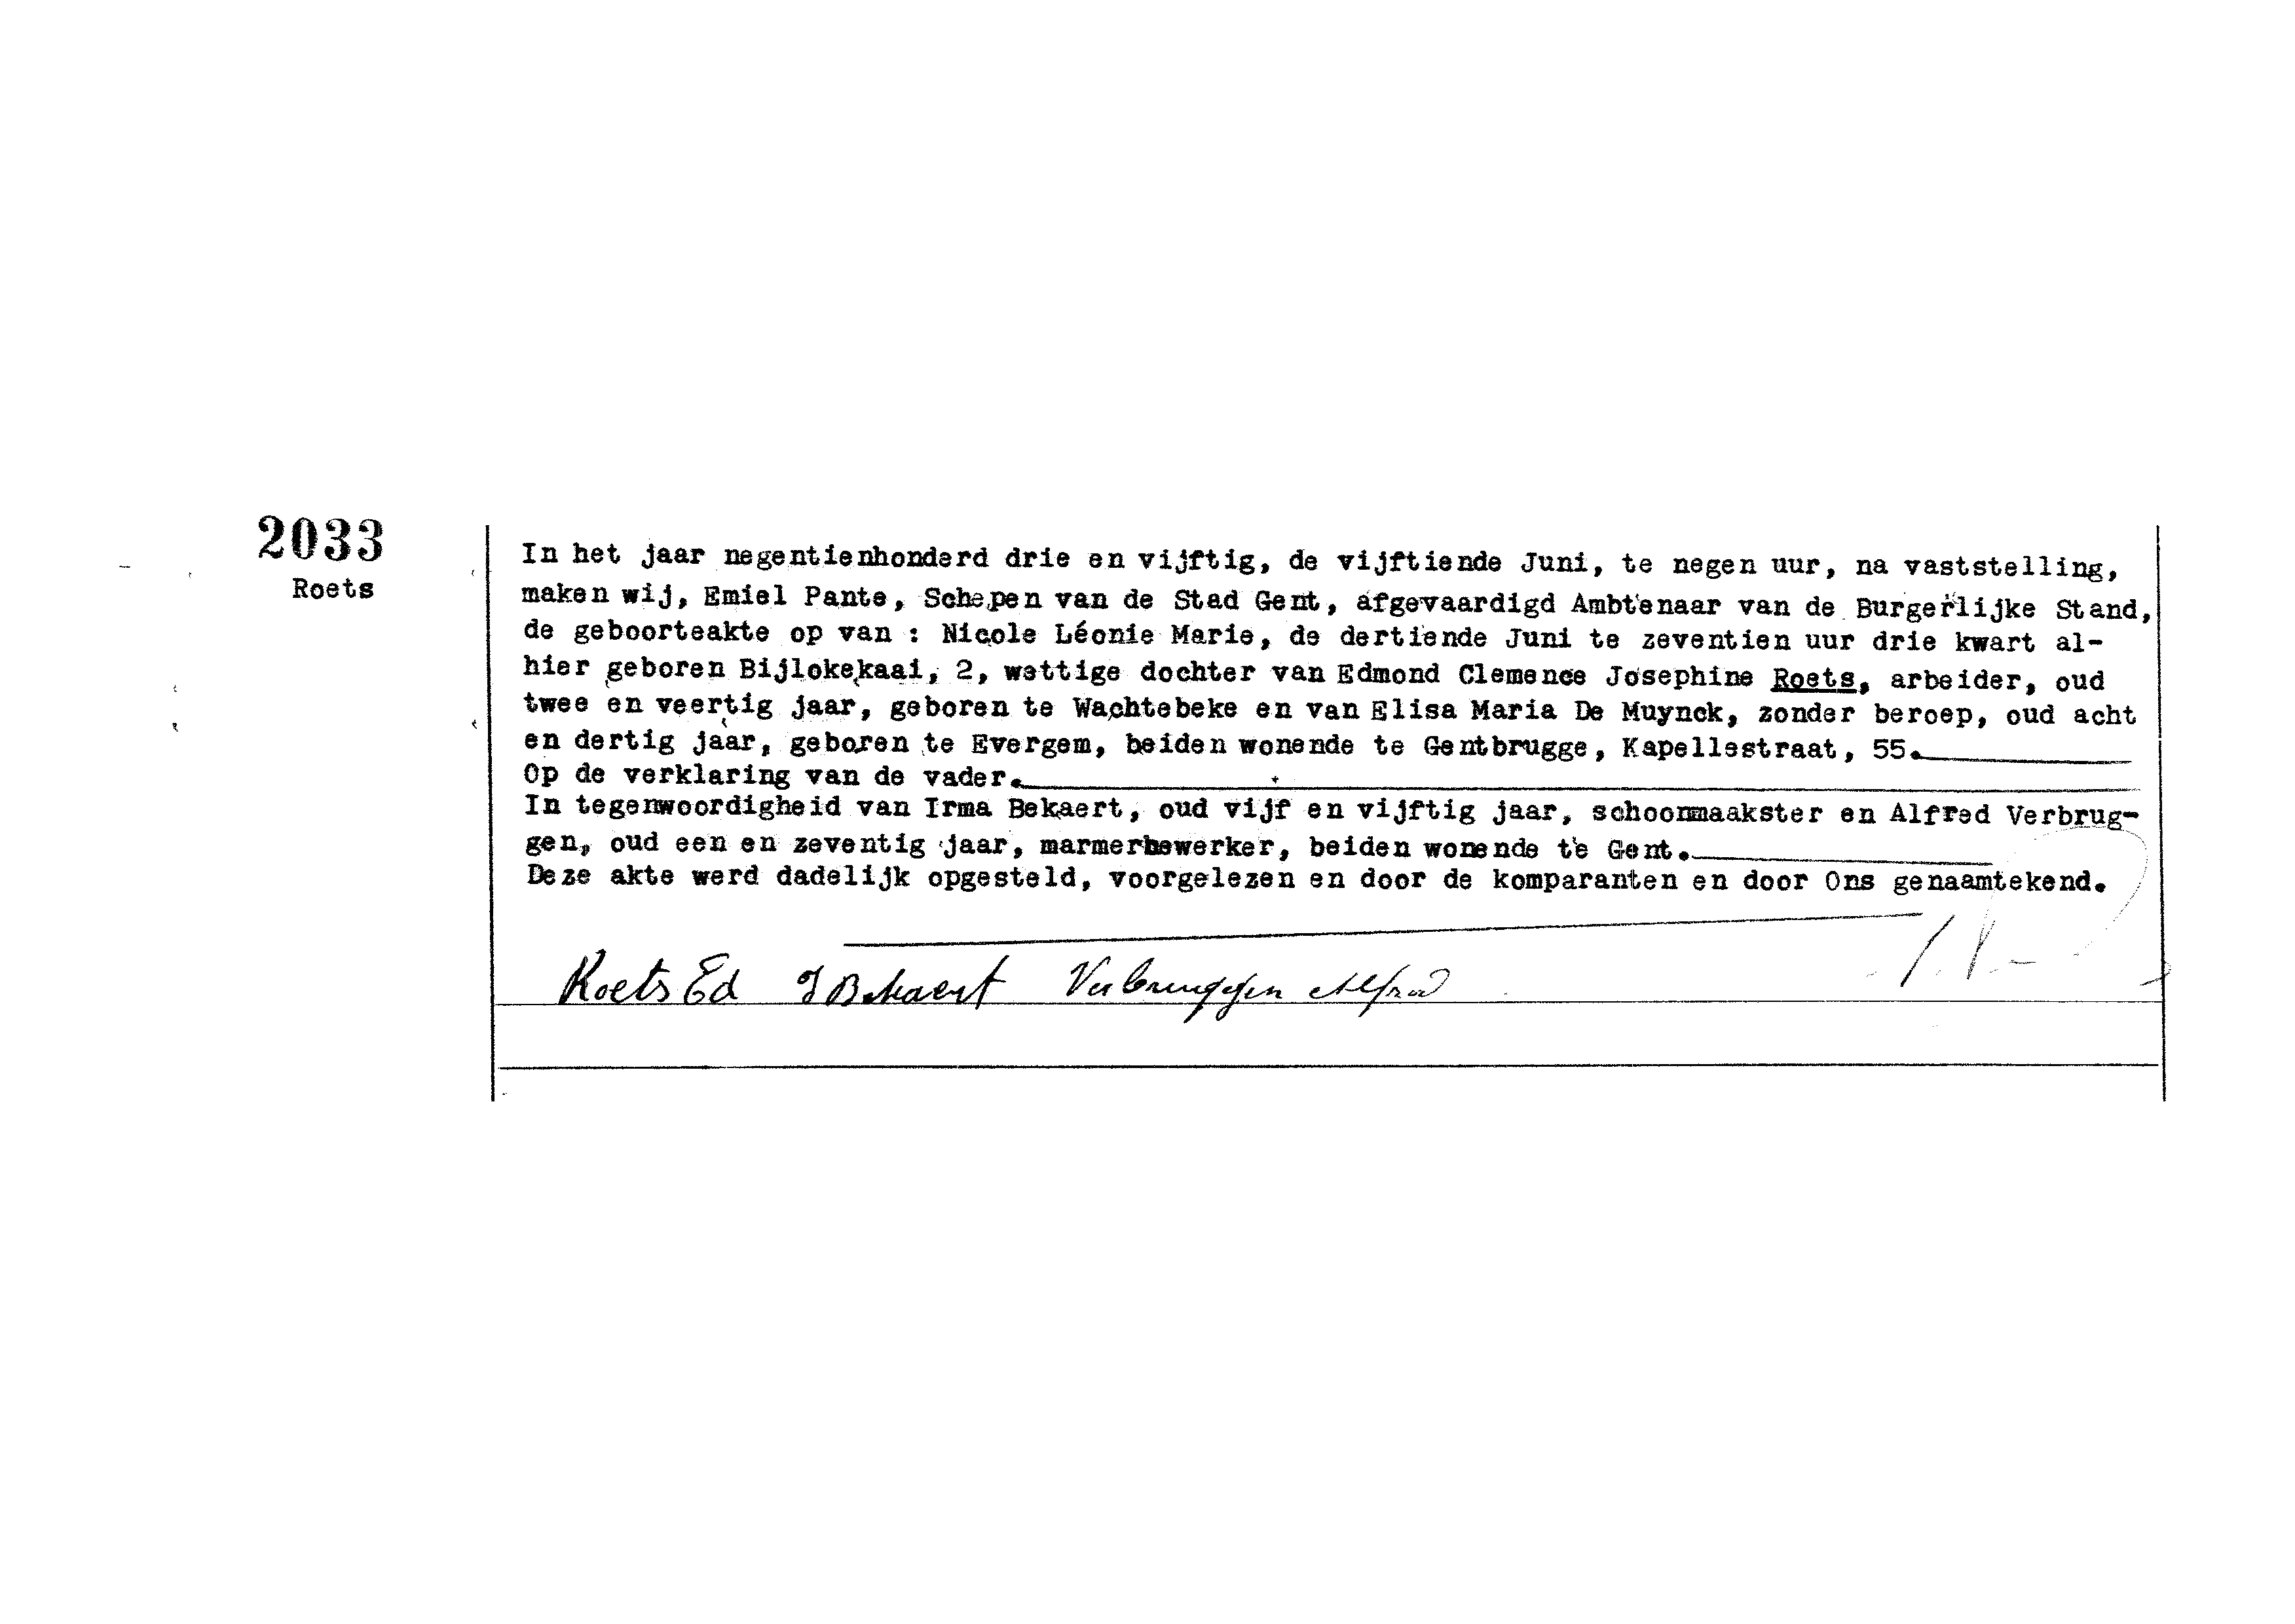 2033
Roets
In het jaar negentienhonderd drie en vijftig, de vijftiende Juni, te negen uur, na vaststelling,
maken wij, Emiel Pante, Schepen van de Stad Gent, afgevaardigd Ambtenaar van de Burgerlijke Stand,
de geboorteakte op van : Nicole Léonie Marie, de dertiende Juni te zeventien uur drie kwart al-
hier geboren Bijlokekaai, 2, wettige dochter van Edmond Clemence Josephine Roets, arbeider, oud
twee en veertig jaar, geboren te Wachtebeke en van Elisa Maria De Muynck, zonder beroep, oud acht
en dertig jaar, geboren te Evergem, beiden wonende te Gentbrugge, Kapellestraat, 55.
Op de verklaring van de vader.
In tegenwoordigheid van Irma Bekaert, oud vijf en vijftig jaar, schoonmaakster en Alfred Verbrug-
gen, oud een en zeventig jaar, marmerbewerker, beiden wonende te Gent.
Deze akte werd dadelijk opgesteld, voorgelezen en door de komparanten en door Ons genaamtekend.
Roets Ed I Bekaert Verbruggen Alfred